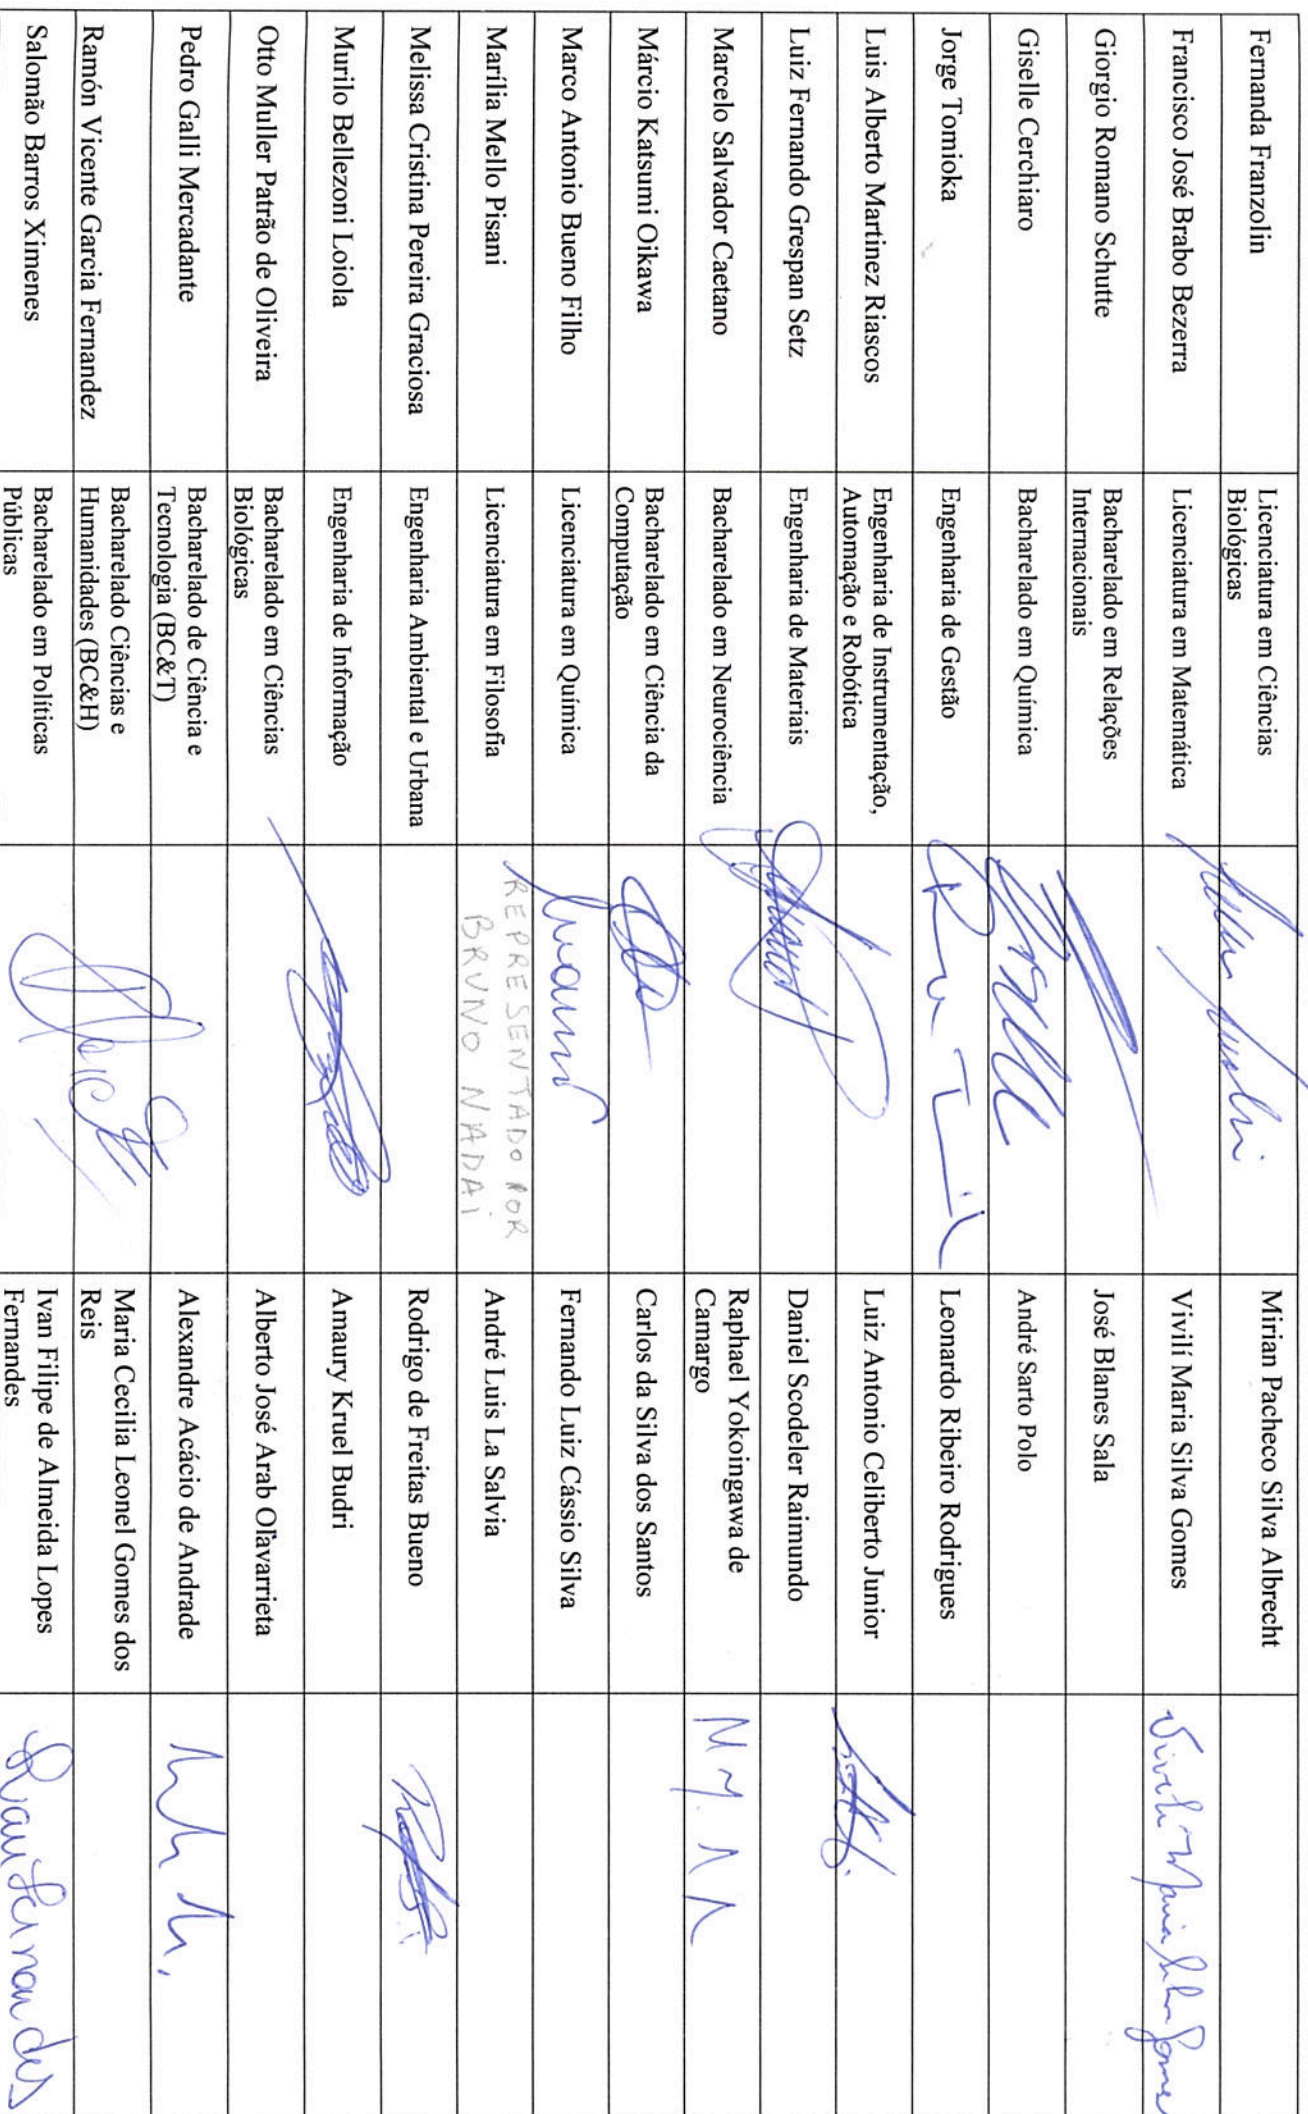 Fernanda Franzolin
Licenciatura em Ciências
Biológicas
Mirian Pacheco Silva Albrecht
Francisco José Brabo Bezerra
Licenciatura em Matemática
Vivilí Maria Silva Gomes
Vivili Maria Silva Gomes
Giorgio Romano Schutte
Bacharelado em Relações
Internacionais
José Blanes Sala
Giselle Cerchiaro
Bacharelado em Química
André Sarto Polo
Jorge Tomioka
Engenharia de Gestão
Leonardo Ribeiro Rodrigues
Luis Alberto Martinez Riascos
Engenharia de Instrumentação,
Automação e Robótica
Luiz Antonio Celiberto Junior
Luiz Fernando Grespan Setz
Engenharia de Materiais
Daniel Scodeler Raimundo
Marcelo Salvador Caetano
Bacharelado em Neurociência
Raphael Yokoingawa de
Camargo
Márcio Katsumi Oikawa
Bacharelado em Ciência da
Computação
Carlos da Silva dos Santos
Marco Antonio Bueno Filho
Licenciatura em Química
Fernando Luiz Cássio Silva
Marília Mello Pisani
Licenciatura em Filosofia
REPRESENTADO POR
BRUNO NADAI
André Luis La Salvia
Melissa Cristina Pereira Graciosa
Engenharia Ambiental e Urbana
Rodrigo de Freitas Bueno
Murilo Bellezoni Loiola
Engenharia de Informação
Amaury Kruel Budri
Otto Muller Patrão de Oliveira
Bacharelado em Ciências
Biológicas
Alberto José Arab Olavarrieta
Pedro Galli Mercadante
Bacharelado de Ciência e
Tecnologia (BC&T)
Alexandre Acácio de Andrade
Ramón Vicente Garcia Fernandez
Bacharelado Ciências e
Humanidades (BC&H)
Maria Cecilia Leonel Gomes dos
Reis
Salomão Barros Ximenes
Bacharelado em Políticas
Públicas
Ivan Filipe de Almeida Lopes
Fernandes
Ivan Fernandes